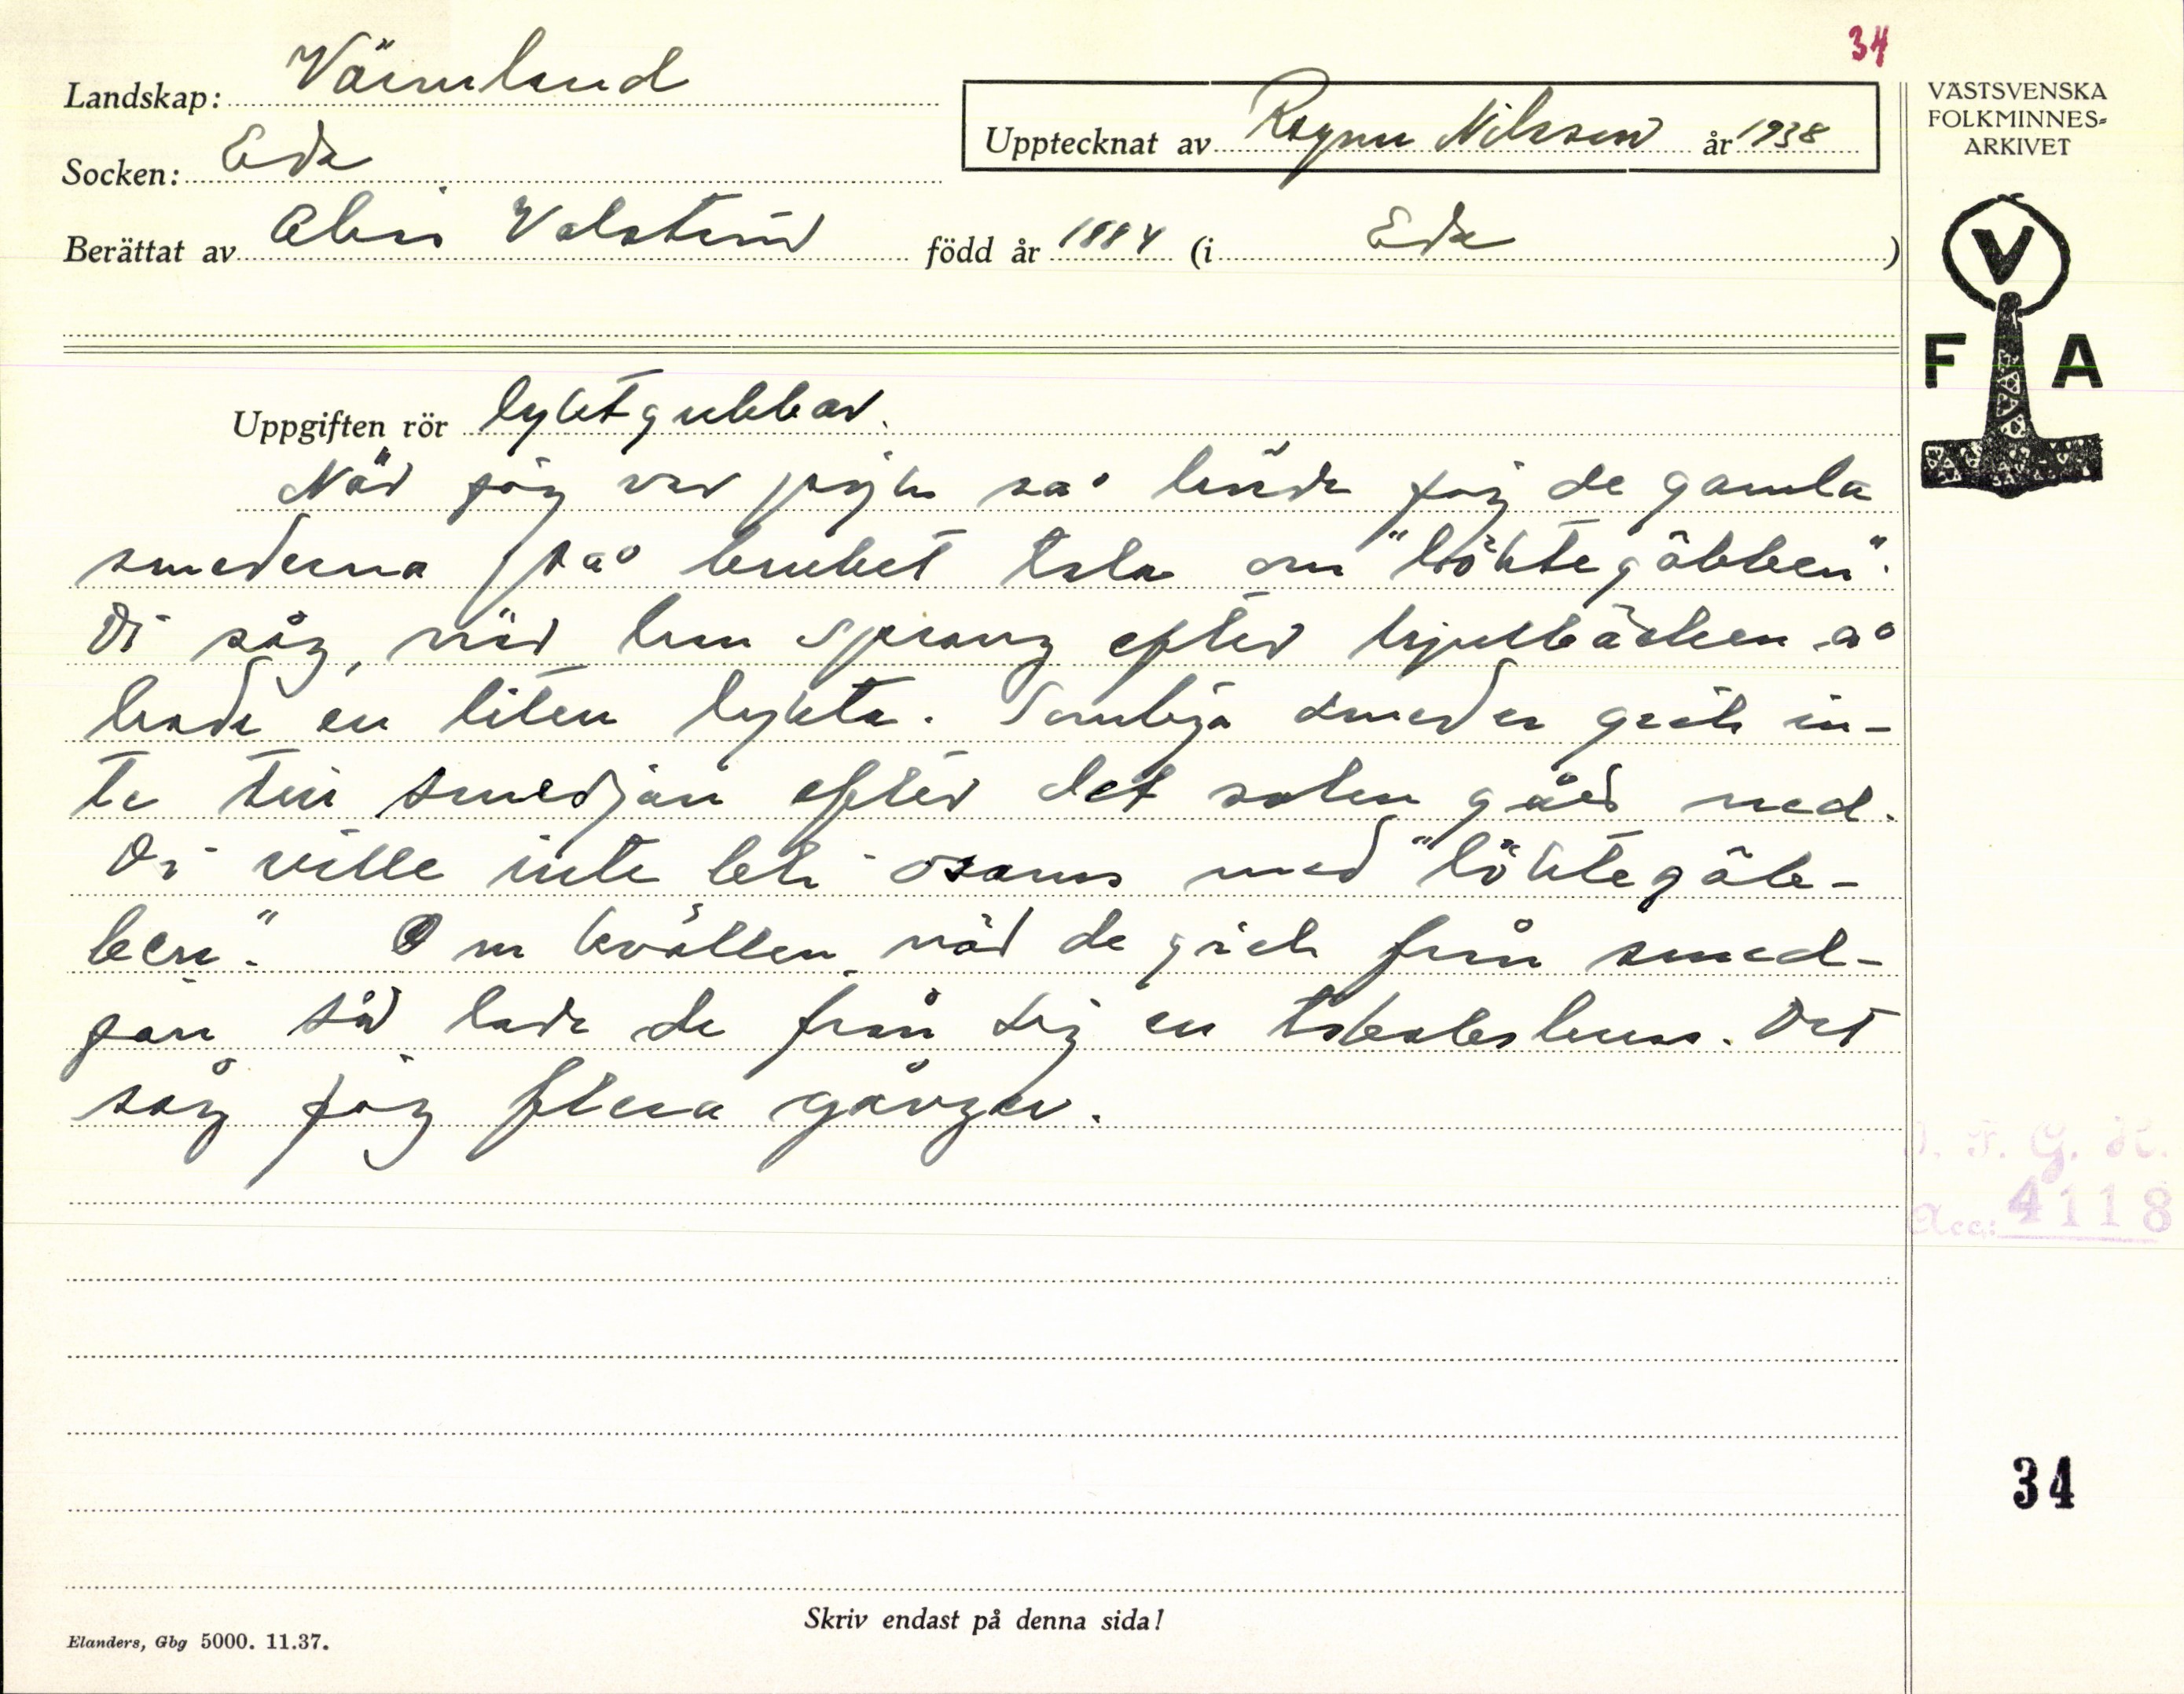 34
Landskap: Värmland
Socken: Eda
Upptecknat av Ragnar Nilsson år 1938
Berättat av Valstrind född år 1884 (i Eda)
VÄSTSVENSKA
FOLKMINNES-
ARKIVET
V
F A
Uppgiften rör lyktgubbar.
När jäg var pöjk sa° hörde jäg de gamla
smederna på bruket tala om "löktegöbben".
Di såg, när han sprang efter hjulbäcken a°
hade en liten lykta. Somliga smeder gick in-
te till smedjan efter det solen gått ned.
Di ville inte bli osams med "löktegöb-
ben". Om kvällen när de gick från smed-
jan så lade de från sig en tobaksbuss. Det
såg jäg flera gånger.
I. F. G. H.
Acc: 4118
34
Skriv endast på denna sida!
Elanders, Gbg 5000. 11.37.